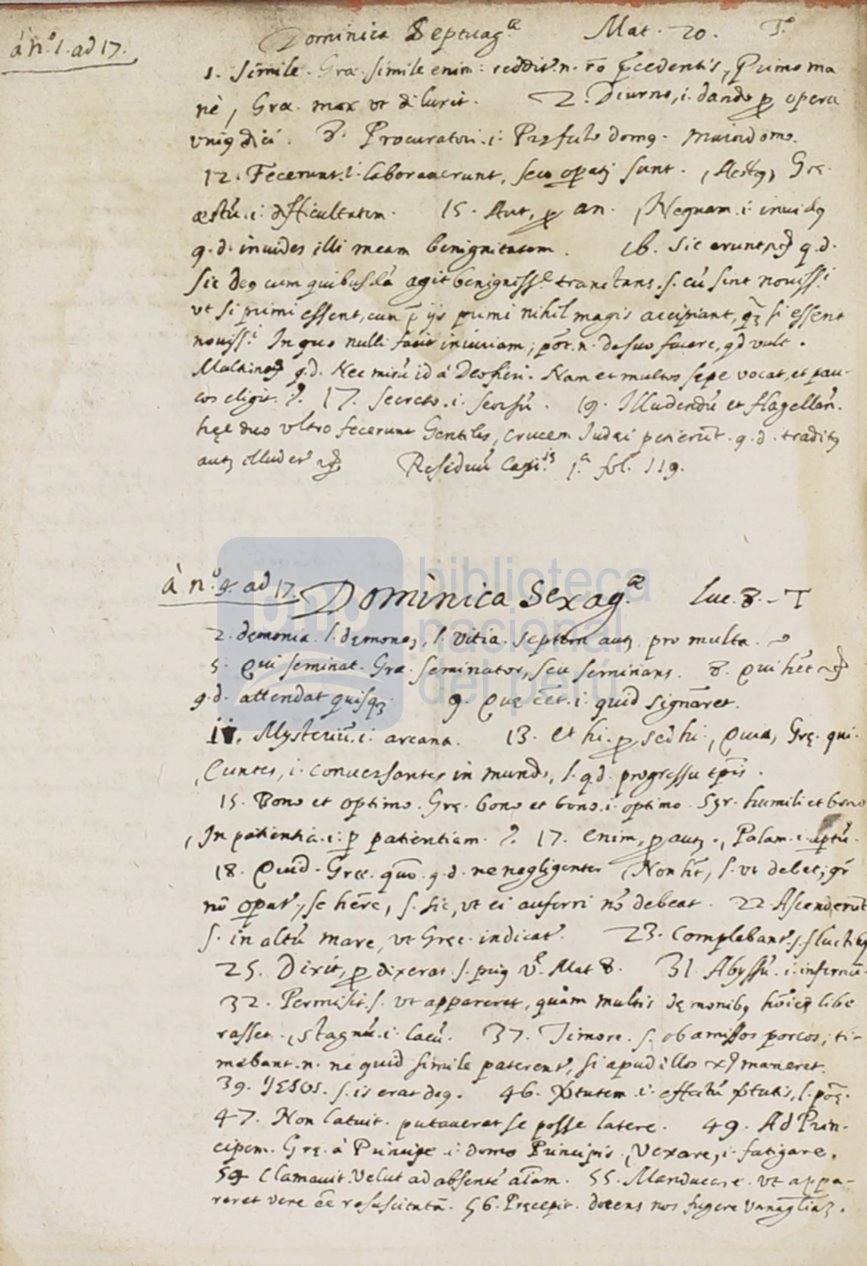 à nº. 1. ad 17. Dominica Septuag.æ Mat. 20. T.º
1. Simile. Græ. simile enim: reddit'. n. rō p̄cedentis, Primo ma
nè, Græ. mox vt diluxit. 2. Diurno, .i. dando p̱ opera
uniq diei. 8. Procuratori .i. Præfecto domq.
12. Fecerunt .i. laborauerunt, seu opati sunt. , Aestq, Gre.
æstū .i. difficultatem. 15. Aut, p̱ an. , Nequam .i. inuidq
q. d. inuides illi meam benignitatem. 16. Sic erunt q. d.
Sic deq cum quibusdā agit benigniss.e s. cū sint nouiss.i
vt si primi essent, cum ijs primi nihil magis accipiant, si essent
nouiss.i In quo nulli facit iniuriam; pōt .n. de suo facere, qd vult.
q. d. Nec mirū id à Deo fieri. Nam et multos sepe vocat, et pau-
cos eligit. 17. Secreto .i. seorsū. 19. Illudendū et flagellan.
hęc duo vltro fecerunt Gentiles, crucem Iudæi petierūt. q. d. traditq
Residuū Capi.is 1.a fol. 119.
à nº. 4. ad 17. Dominica Sexag.æ Luc. 8. - T
biblioteca
nacional
del perú
bnp
2. dęmonia. l. dęmones, l. vitia. Septem autȝ pro multa.
5. Qui seminat. Græ. Seminator, seu seminans. 8. Qui hēt
q. d. attendat quisqȝ 9. Quę eēt .i. quid signāret.
10. Mysteriū .i. arcana. 13. et hi. p̱ sed hi, Quia, Gre. qui.
, Euntes, .i. conuersantes in mundo, l. qd. progressu tp̄is.
15. Bono et optimo. Gre. bono et bono .i. optimo. Syr. humili et bono
, In patientia .i. p̱ patientiam. 17. Enim, p̱ autȝ. , Palam .i. aptū.
18. Quid. Græ. quō. q. d. ne negligenter , Non hēt, s. vt debet; qr
nō opat', se hēre, s. sic, vt ei auferri nō debeat. 22. Ascenderūt
s. in altū mare, vt Gręc. indicat'. 23. Complebant'. s. fluctibq
25. Dixit, p̱ dixerat. s. priq vt Mat 8. 31. Abyssū .i. infernū.
32. Permisit s. vt appareret, quàm multis dęmonibq hōiēs libe
rasset. , Stagnū .i. lacū. 37. Timore. s. ob amissos porcos; ti-
mebant .n. ne quid simile paterent', si apud illos maneret.
39. IESUS. s. is erat deq. 46. Virtutem .i. effectū virtutis, l. pōē.
47. Non latuit. putauerat se posse latere. 49. Ad Prin-
cipem. Gre. à Principe .i. domo Principis. , Vexare, .i. fatigare.
54 Clamauit. Velut ad absentē aīam. 55. Manducare. vt appa-
reret vere eē resuscitatā. 56. Pręcepit. docens nos fugere vanāgliāȝ.